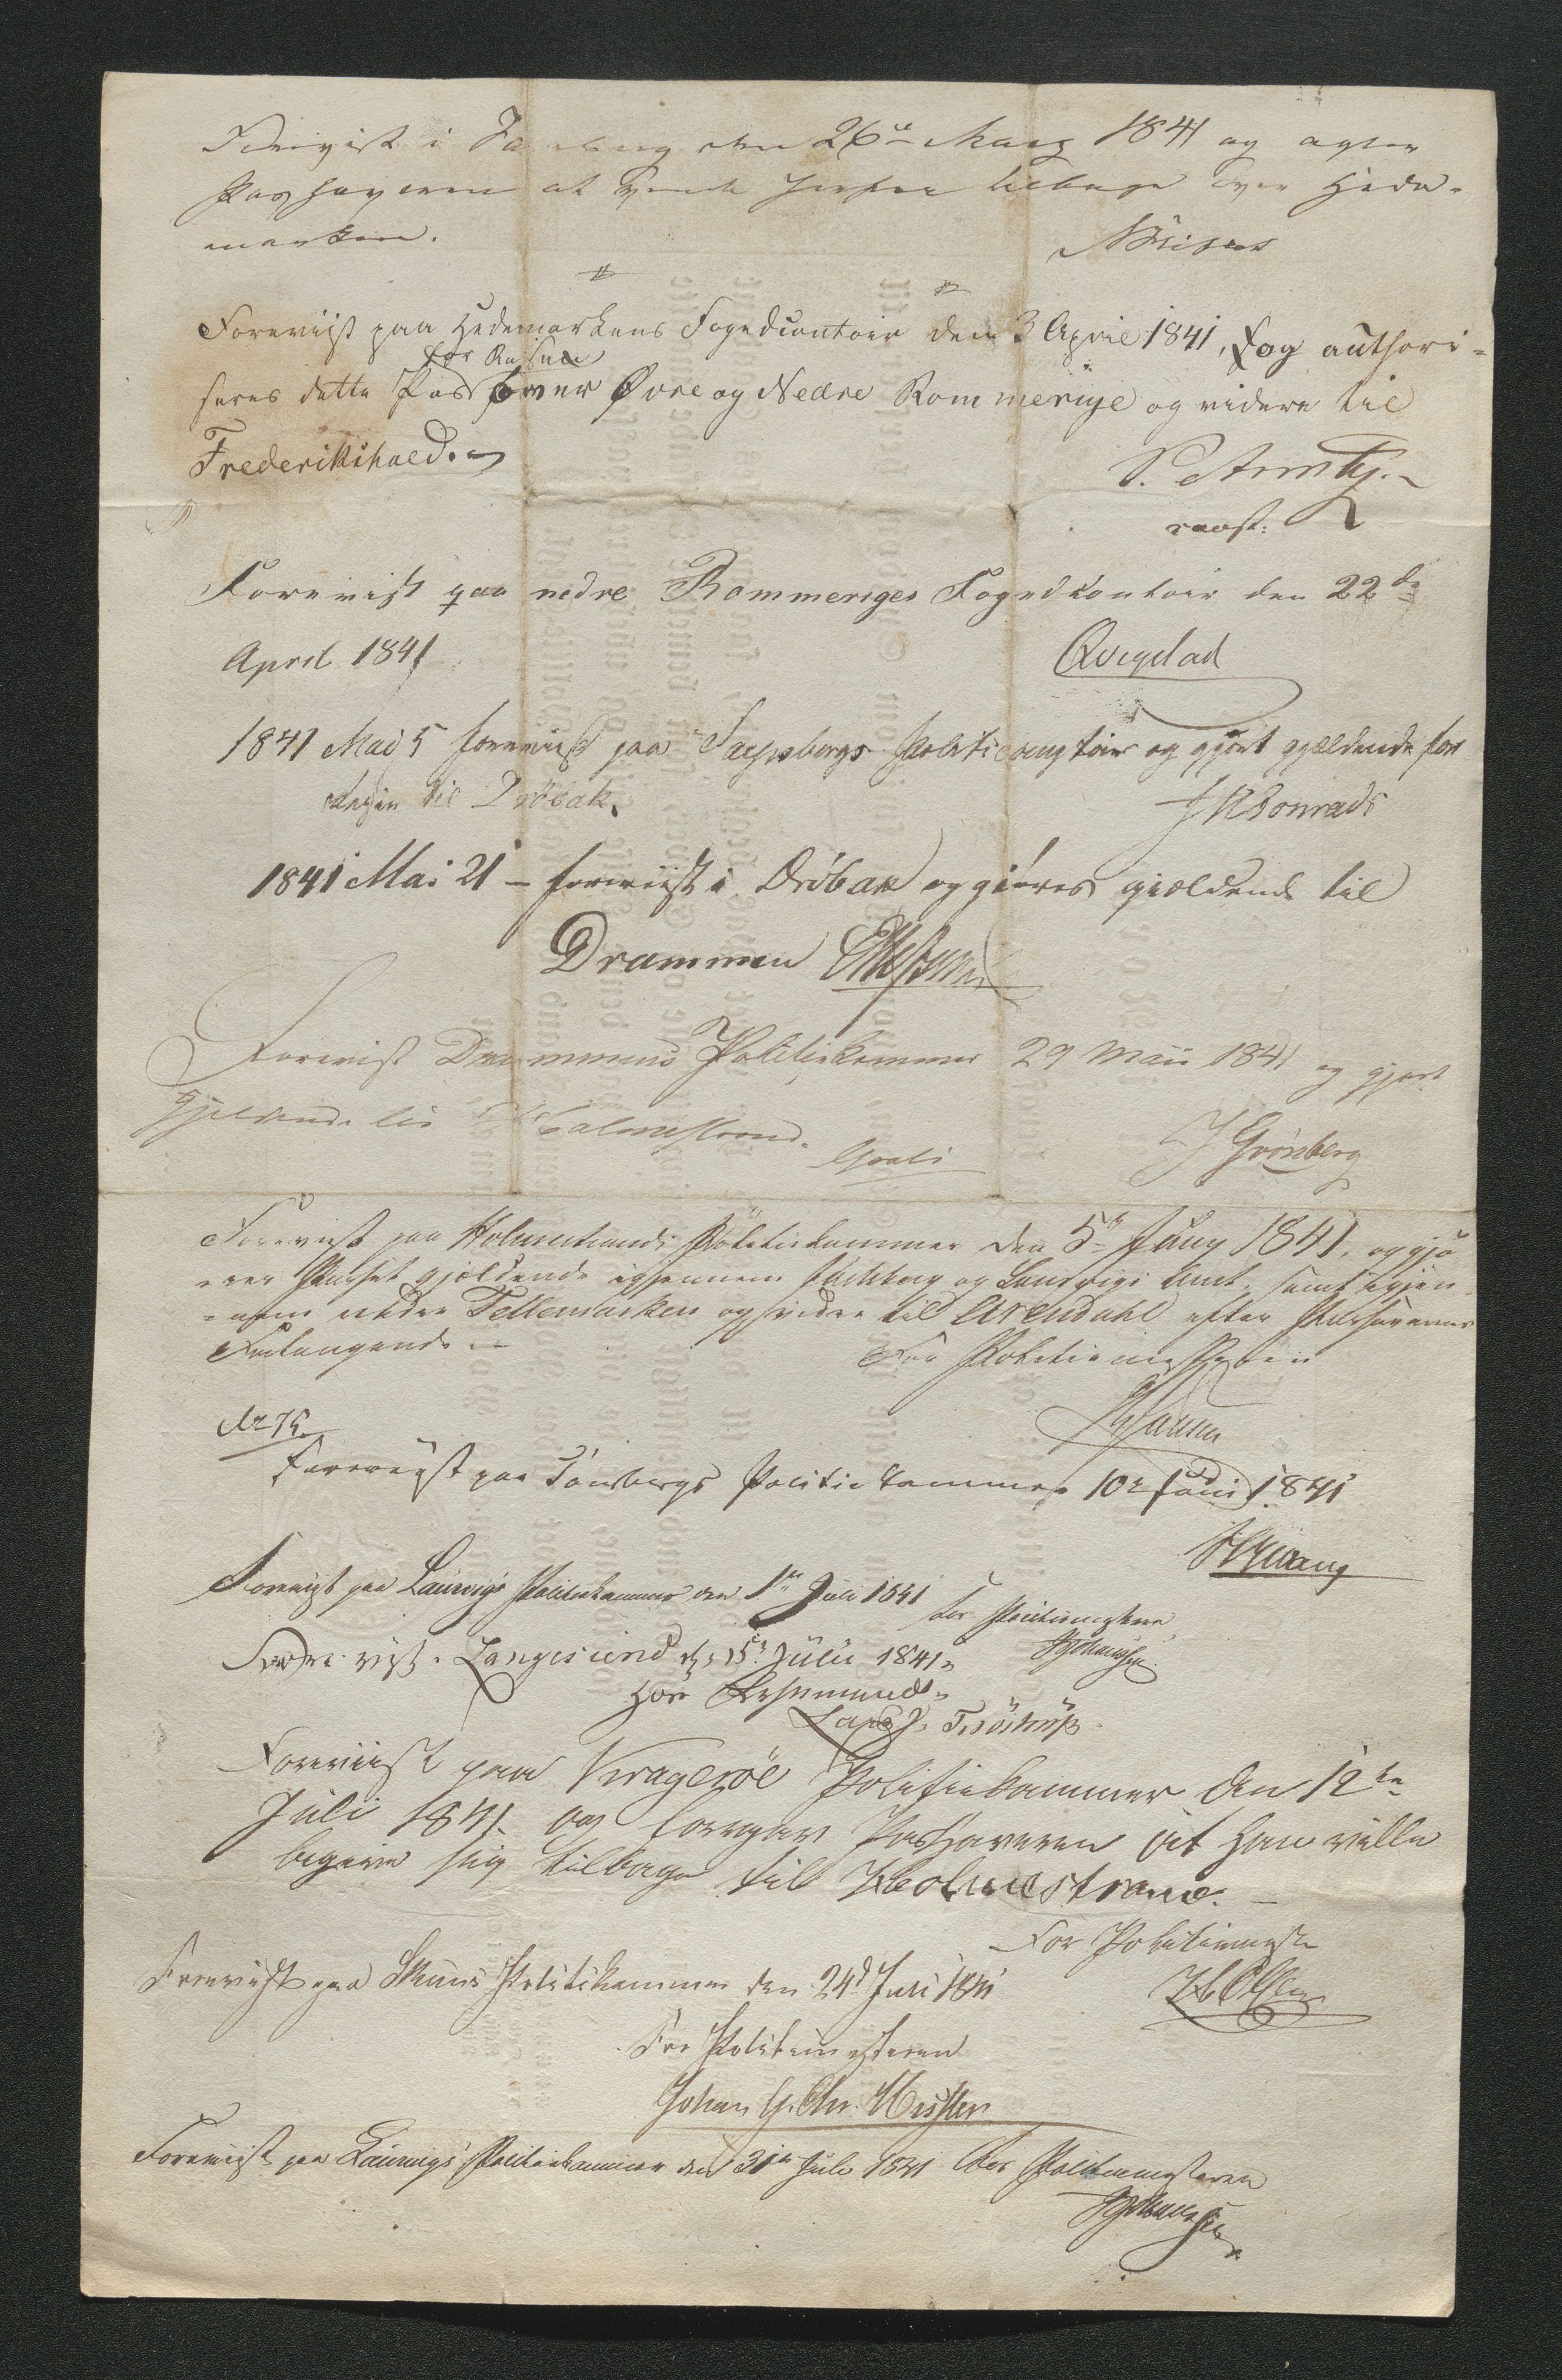 Forevist i den 26de Marz 1841 og agter
Passhaveren at vende herfra tilbage over Hede-
marken.
Foreviist paa Hedemarkens Fogedcontoir den 3 April 1841, og authori-
for Reisen
seres dette Pass over Øvre og Nedre Rommerige og videre til
Frederikshald.
const:
Forevist paa nedre Rommeriges Fogedkontoir den 22de
April 1841 Qvigstad
1841 Mai 5 foreviist paa Sarpsborgs Politicomptoir og gjort gjældende for
Reisen til Drøbak.
1841 Mai 21 - foreviist i Drøbak og giøres giældende til
Drammen
Forevist Drammens Politiekammer 29 Maii 1841 og gjort
gjeldende til Holmestrand.
Gratis J Grønberg
Forevist paa Holmestrands Politiekammer den 5te Juny 1841, og gjø-
res Passet gjældende igjennem Jarlsberg og Laurvigs Amt, samt igjen-
nem nedre Tellemarken og videre til Arendahl efter Passhaverens
Forlangende.
For Politiemesteren
No 75.
Foreviist paa Tønsbergs Politiekammer 10de Juni 1841
Forevist paa Laurvigs Politiekammer den 1ste Juli 1841
For Politimesteren
Forevist. Langesund d. 5te Julii 1841.
Foreviist paa Kragerøe Politiekammer den 12te
Juli 1841 og foregav Passhaveren at han vilde
begive sig tilbage til Holmestrand.
For Politimester
Foreviist paa Skiens Politikammer den 24d Juli 1841
For Politimesteren
Johan
Forevist paa Laurvigs Politiekammer den 31te Juli 1841 For Politimesteren